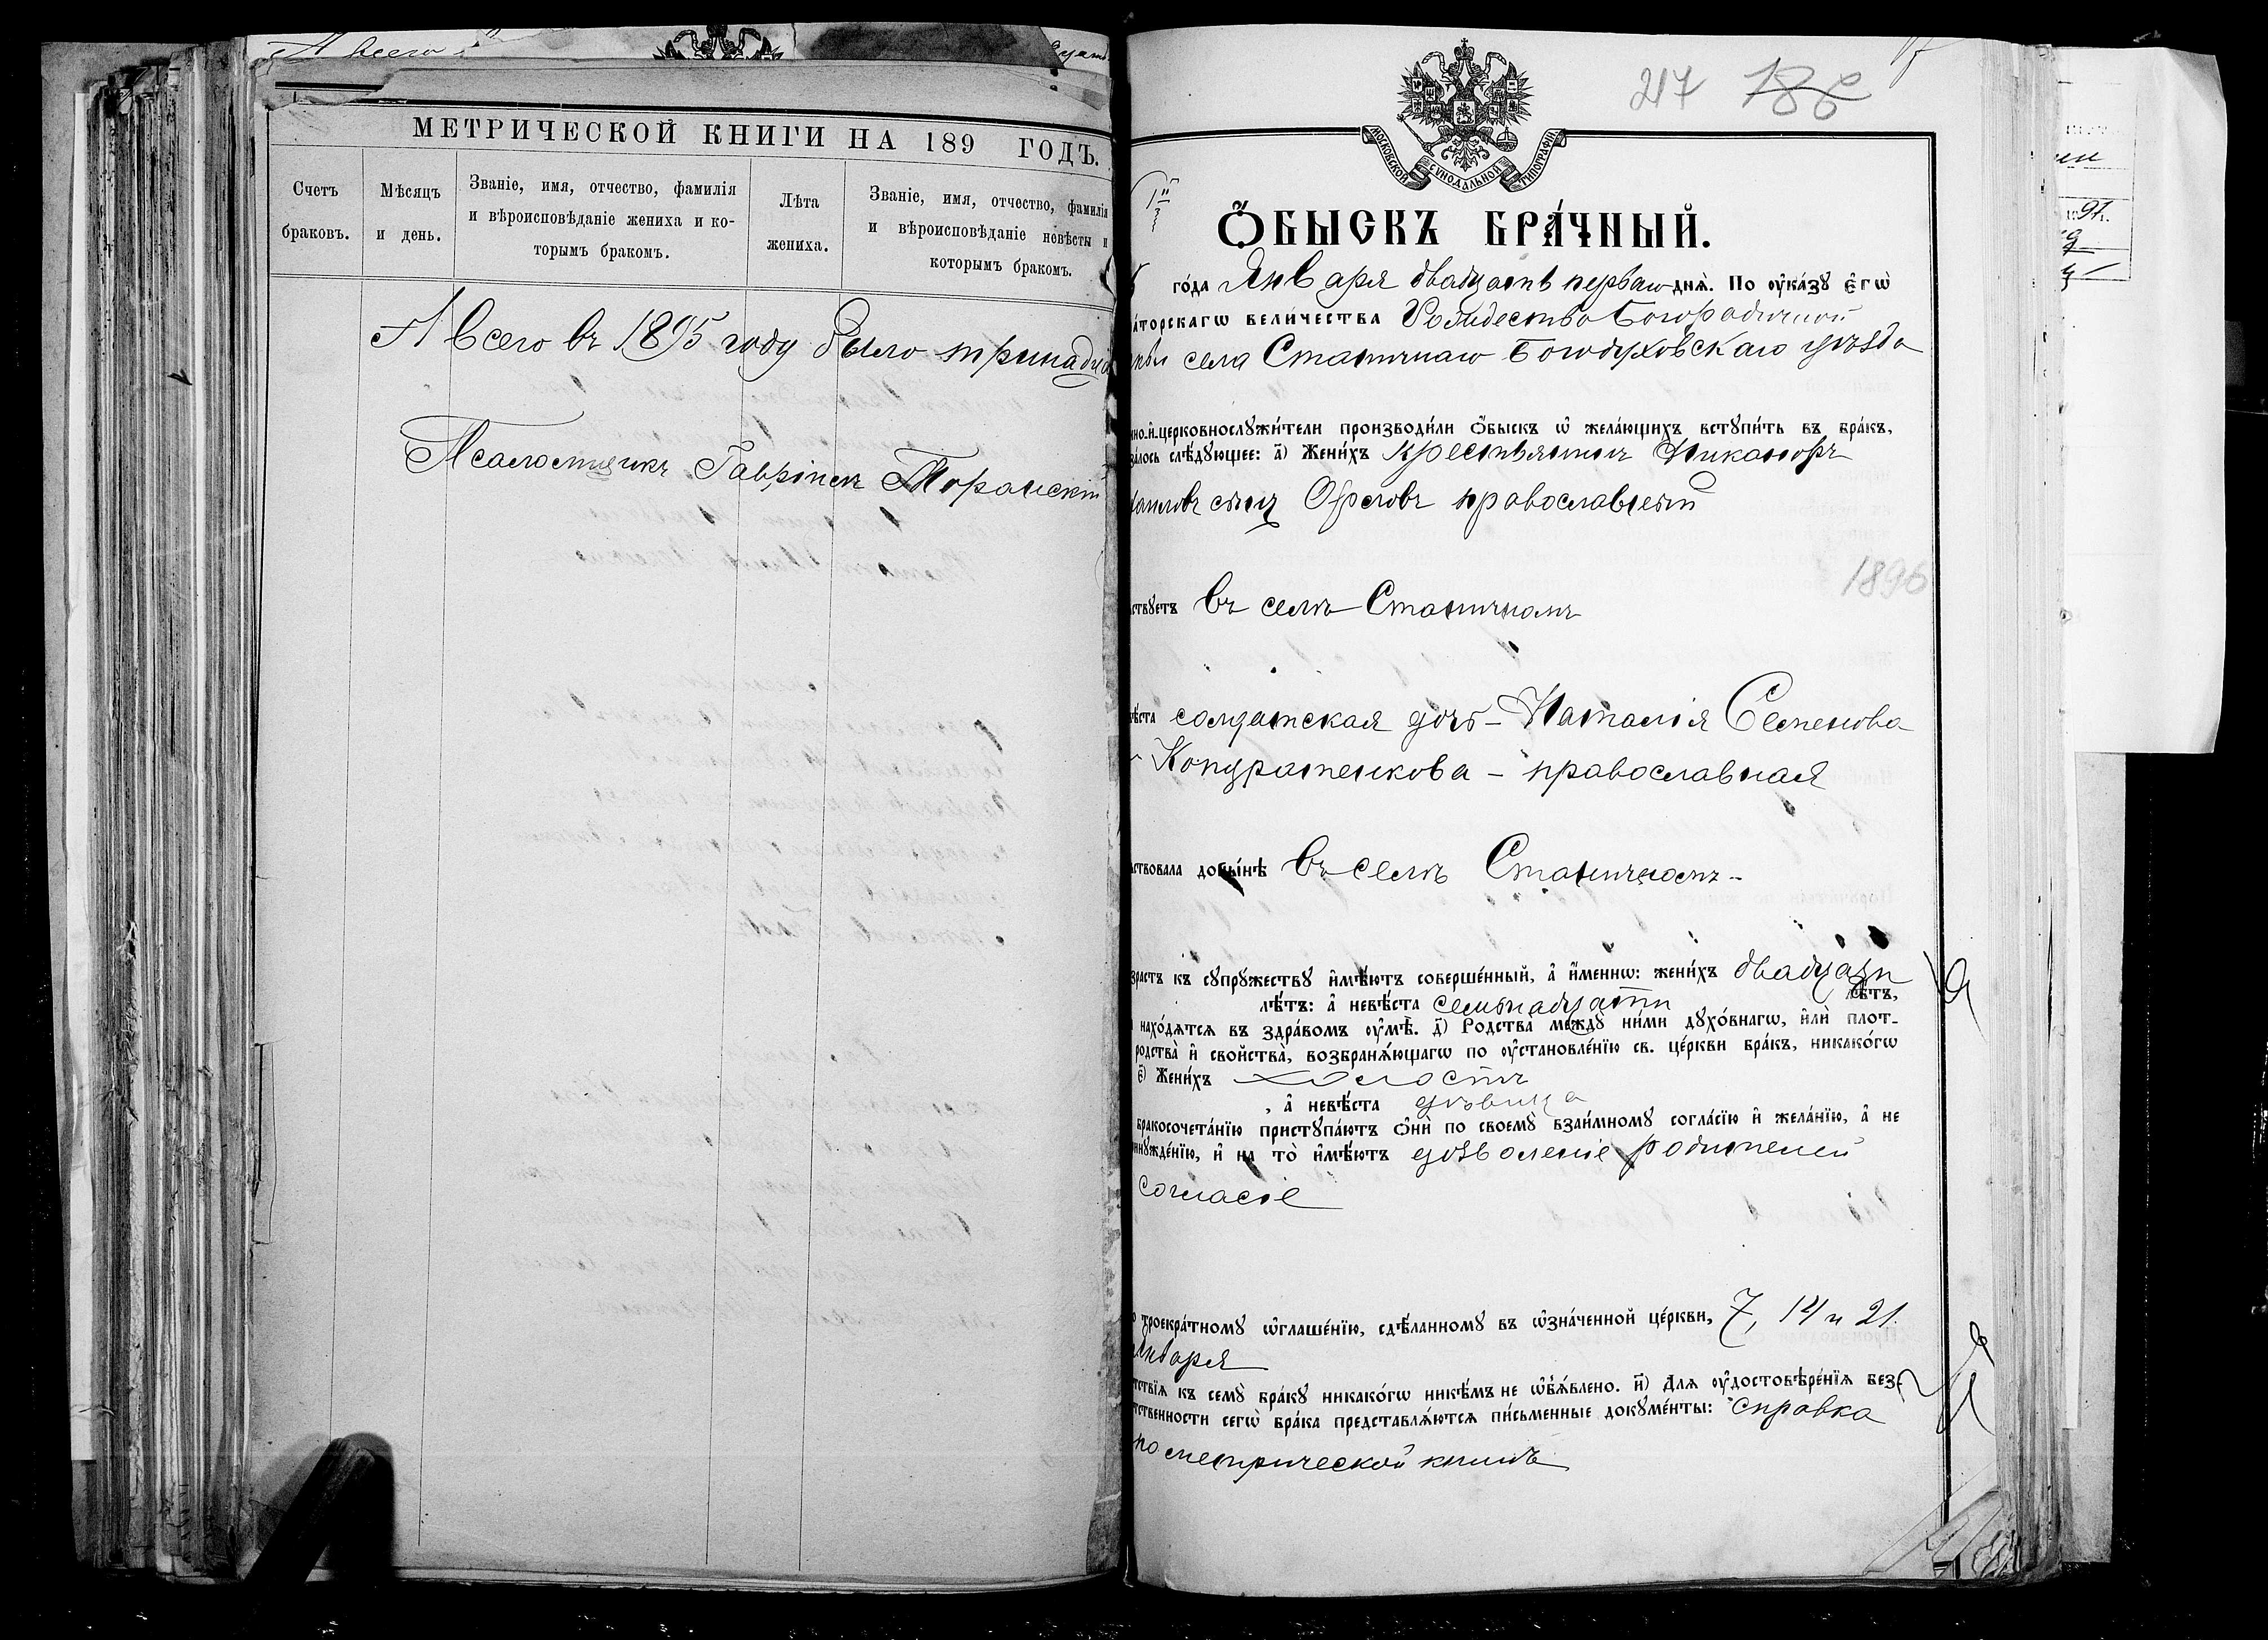 А всего
МЕТРИЧЕСКОЙ КНИГИ НА 189 ГОДЪ.
Счетъ браковъ.
Мѣсяцъ и день.
Званіе, имя, отчество, фамилія и вѣроисповѣданіе жениха и ко-торымъ бракомъ.
Лѣта жениха.
Званіе, имя, отчество, фамилія и вѣроисповѣданіе невѣсты и которымъ бракомъ.
А всего въ 1895 году было тринадца
Псаломщикъ Гавріилъ
217 186
МОСКОВСКОЙ СУНОДАЛЬНОЙ ТИПОГРАФІИ
Ѻ҆БЫСКЪ БРА́ЧНЫЙ.
го́да Января двадцать перваго днѧ̀. По ᲂу҆ка́зꙋ є҆гѡ̀
а́торскагѡ вели́чества Рождество Богородичной
кви села Станичнаго Богодуховскаго уѣзда
нно-и҆-церковнослꙋжи́тели производи́ли ѻ҆́быскъ ѡ҆ жела́ющихъ встꙋпи́ть въ бра́къ,
за́лось слѣ́дꙋющее: а҃) Жени́хъ крестьянинъ Никаноръ
сынъ Орловъ православный
1896
ствꙋетъ въ селѣ Станичномъ
вѣ́ста солдатская дочь – Наталія Семенова
Кондратенкова – православная
ствовала доны́нѣ въ селѣ Станичномъ –
зрастъ къ сꙋпрꙋ́жествꙋ и҆мѣ́ютъ соверше́нный, а҆ и҆́меннѡ: жени́хъ двадцати
лѣ́тъ: а҆ невѣ́ста семнадцати лѣ́тъ,
нахо́дѧтсѧ въ здра́вомъ ᲂу҆мѣ̀. д҃) Родства̀ междꙋ̀ ни́ми дꙋхо́внагѡ, и҆лѝ плот-
родства̀ и҆ свойства̀, возбранѧ́ющагѡ по ᲂу҆становле́нїю св. це́ркви бра́къ, никако́гѡ
є҃) Жени́хъ холостъ
, а҆ невѣ́ста дѣвица
бракосочета́нїю пристꙋпа́ютъ ѻ҆нѝ по своемꙋ̀ взаи́мномꙋ согла́сїю и҆ жела́нїю, а҆ не
инꙋжде́нїю, и҆ на то̀ и҆мѣ́ютъ дозволеніе родителей
согласіе
троекра́тномꙋ ѡ҆глаше́нїю, сдѣ́ланномꙋ въ ѡ҆зна́ченной це́ркви, 7, 14 и 21.
января
тствїѧ къ семꙋ̀ бра́кꙋ никако́гѡ никѣ́мъ не ѡ҆б̾ѧ́влено. и҃) Длѧ ᲂу҆достовѣре́нїѧ без-
тственности сегѡ̀ бра́ка представлѧ́ютсѧ пи́сьменные докꙋме́нты: справка
по метрической книгѣ